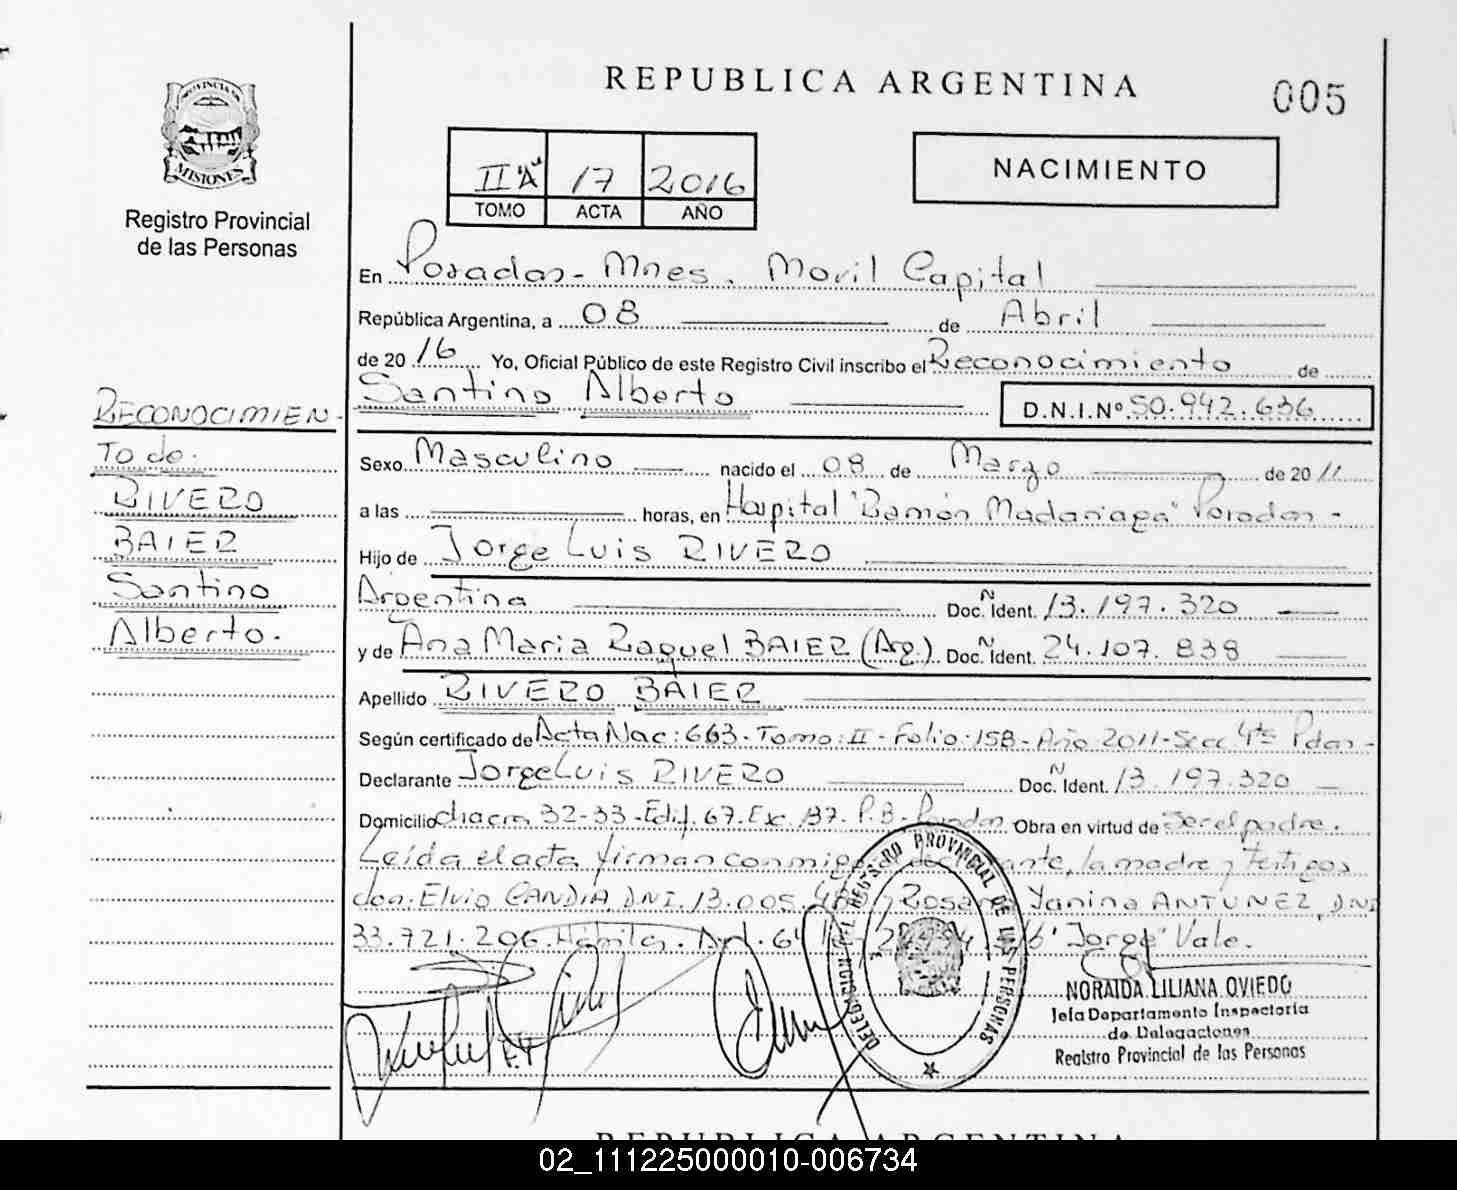 REPUBLICA ARGENTINA
005
PROVINCIA DE
MISIONES
Registro Provincial
de las Personas
II "A" 17 2016
TOMO ACTA AÑO
NACIMIENTO
En Posadas - Mnes. Movil Capital
República Argentina, a 08 de Abril
de 2016 Yo, Oficial Público de este Registro Civil inscribo el Reconocimiento de
Santino Alberto D.N.I.Nº 50.942.636
RECONOCIMIEN-
To de:
RIVERO
BAIER
Santino
Alberto.
Sexo Masculino nacido el 08 de Marzo de 2011
a las horas, en Hospital "Ramón Madariaga" Posadas -
Hijo de Jorge Luis RIVERO
Argentina Doc. Ident. N 13.197.320
y de Ana Maria Raquel BAIER (Arg.). Doc. Ident. N 24.107.838
Apellido RIVERO BAIER
Según certificado de Acta Nac: 663 - Tomo: II - Folio: 158 - Año 2011 - Secc 4ta Pdas -
Declarante Jorge Luis RIVERO Doc. Ident. N 13.197.320
Domicilio chacra 32-33 - Edif. 67. Esc. 137. P.B - Posadas Obra en virtud de Ser el padre.
Leída el acta firman conmigo declarante, la madre y testigos
don: Elvio CANDIA DNI. 13.005. Rosana Yanina ANTUNEZ, DNI
33.721.206 "Jorge" Vale.
DELEGACION DEL REGISTRO PROVINCIAL DE LAS PERSONAS
NORAIDA LILIANA OVIEDO
Jefa Departamento Inspectoria
de Delegaciones
Registro Provincial de las Personas
REPUBLICA ARGENTINA
02_111225000010-006734